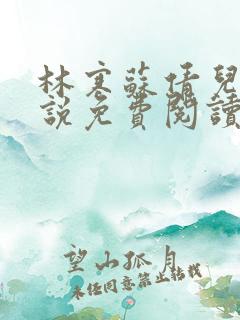 林寒蘇倩兒
說免費閱讀
望山孤月
未經同意禁止轉載